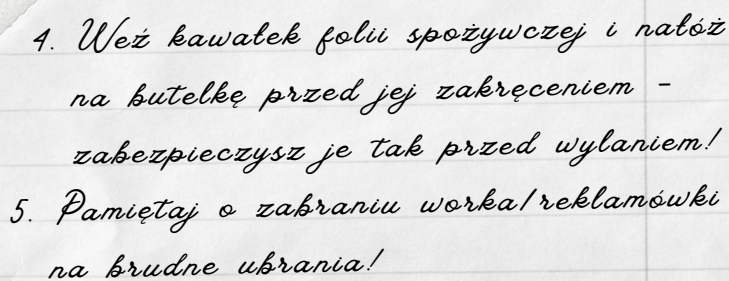 4. Weź kawałek folii spożywczej i nałóż
na butelkę przed jej zakręceniem -
zabezpieczysz je tak przed wylaniem!
5. Pamiętaj o zabraniu worka/reklamówki
na brudne ubrania!